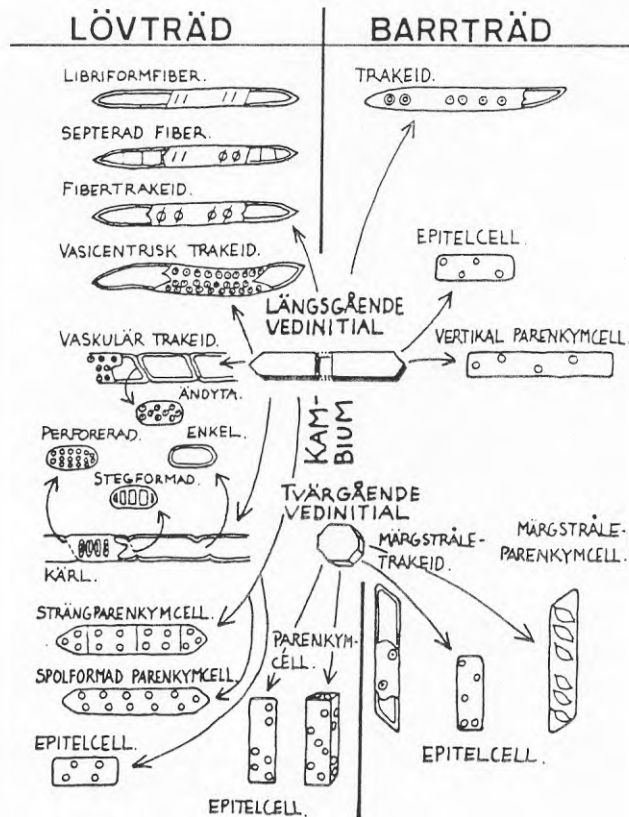 LÖVTRÄD
BARRTRÄD
LIBRIFORMFIBER.
SEPTERAD FIBER.
FIBERTRAKEID.
VASICENTRISK TRAKEID.
TRAKEID.
EPITELCELL.
LÄNGSGÅENDE
VEDINITIAL
VASKULÄR TRAKEID.
VERTIKAL PARENKYMCELL.
ÄNDYTA.
PERFORERAD.
ENKEL.
STEGFORMAD.
KÄRL.
KAM-
BIUM
TVÄRGÅENDE
VEDINITIAL
MÄRGSTRÅLE-
TRAKEID.
MÄRGSTRÅLE-
PARENKYMCELL.
STRÄNGPARENKYMCELL.
SPOLFORMAD PARENKYMCELL.
EPITELCELL.
PARENKYM-
CELL.
EPITELCELL.
EPITELCELL.